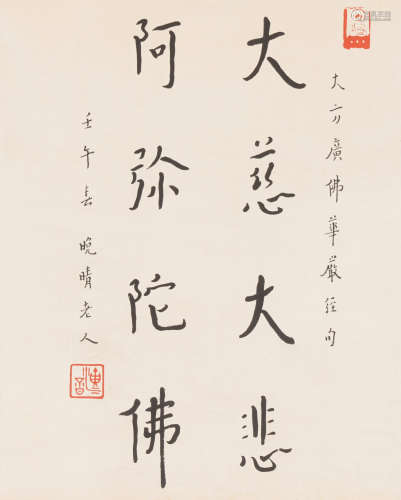 大方廣佛華嚴經句
大慈大悲
阿弥陀佛
壬午春 晚晴老人